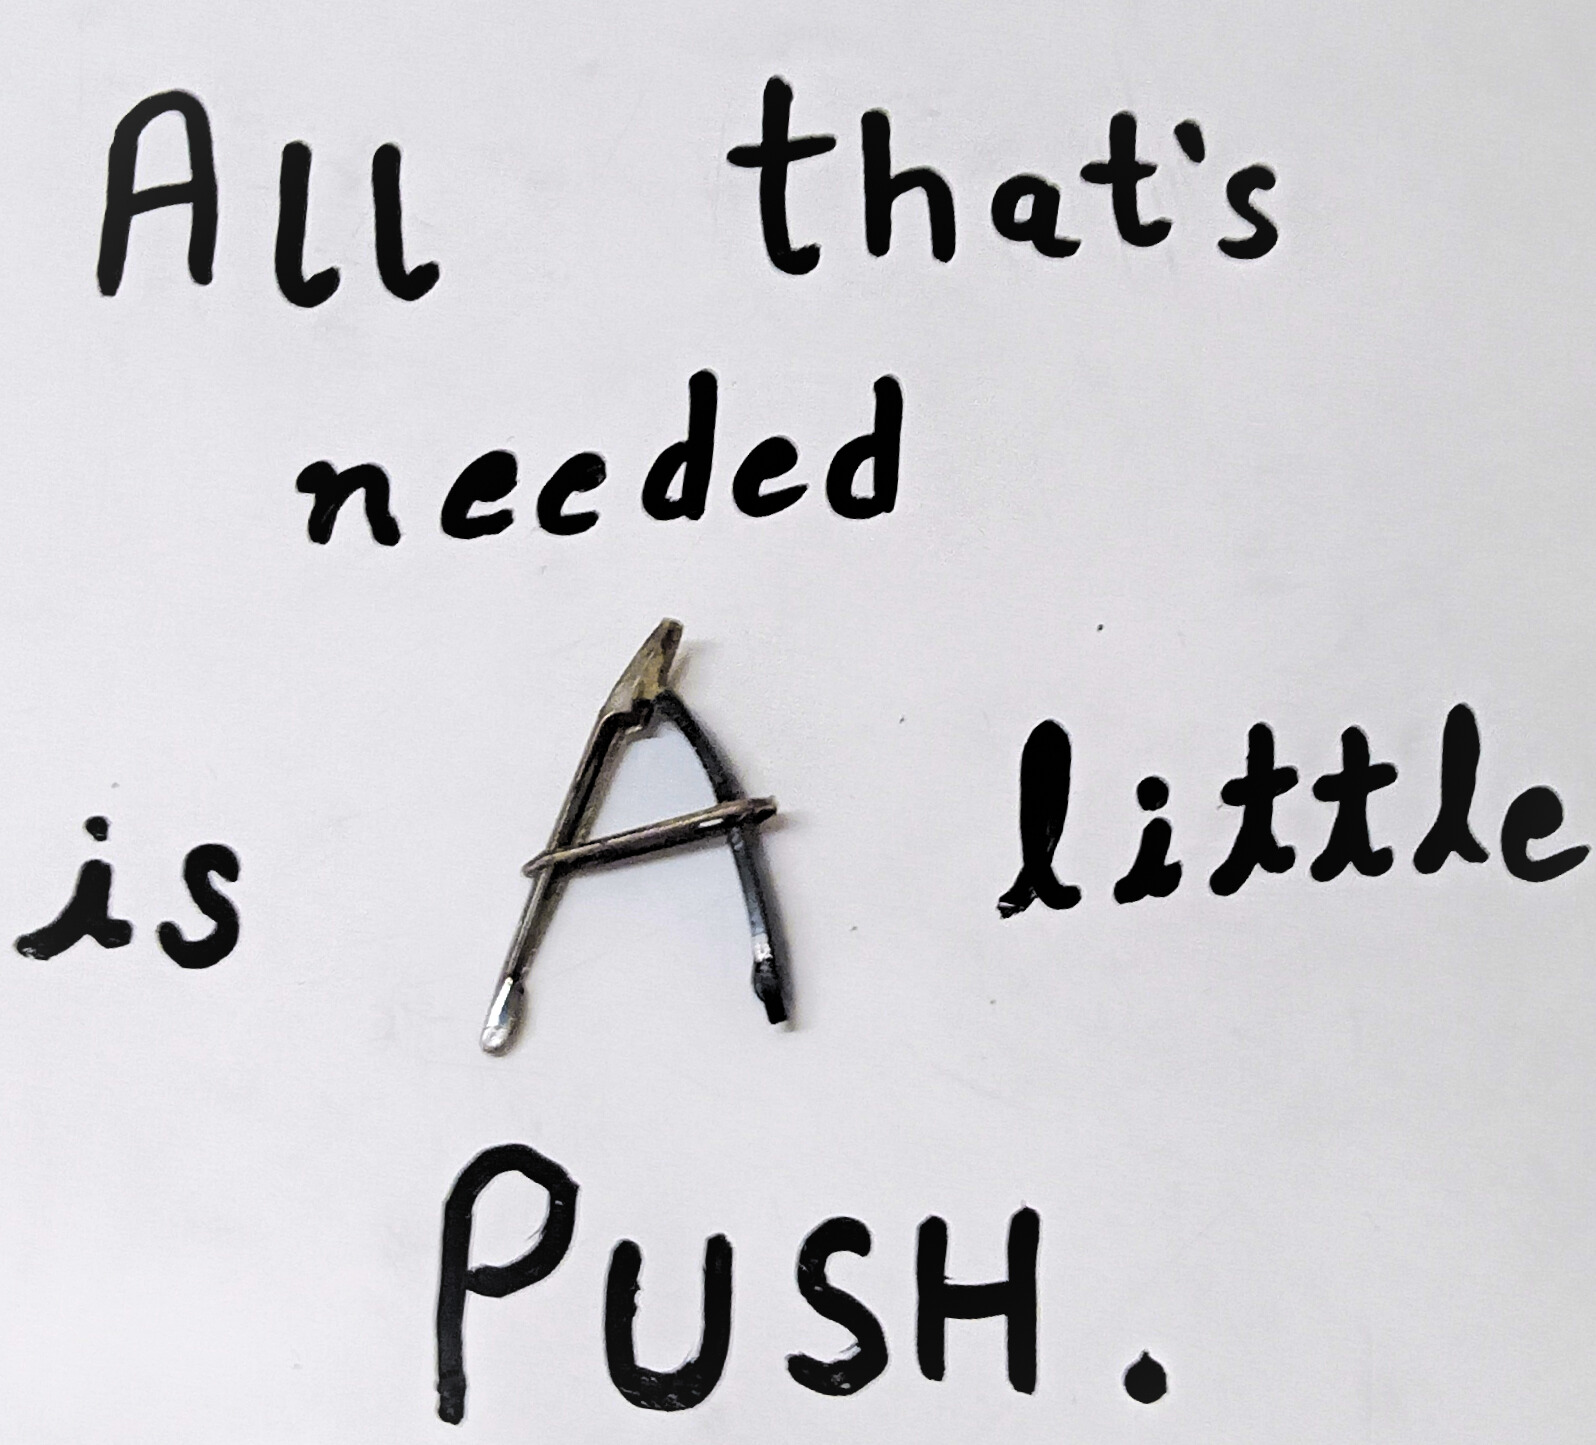 All that's
needed
is A little
PUSH.